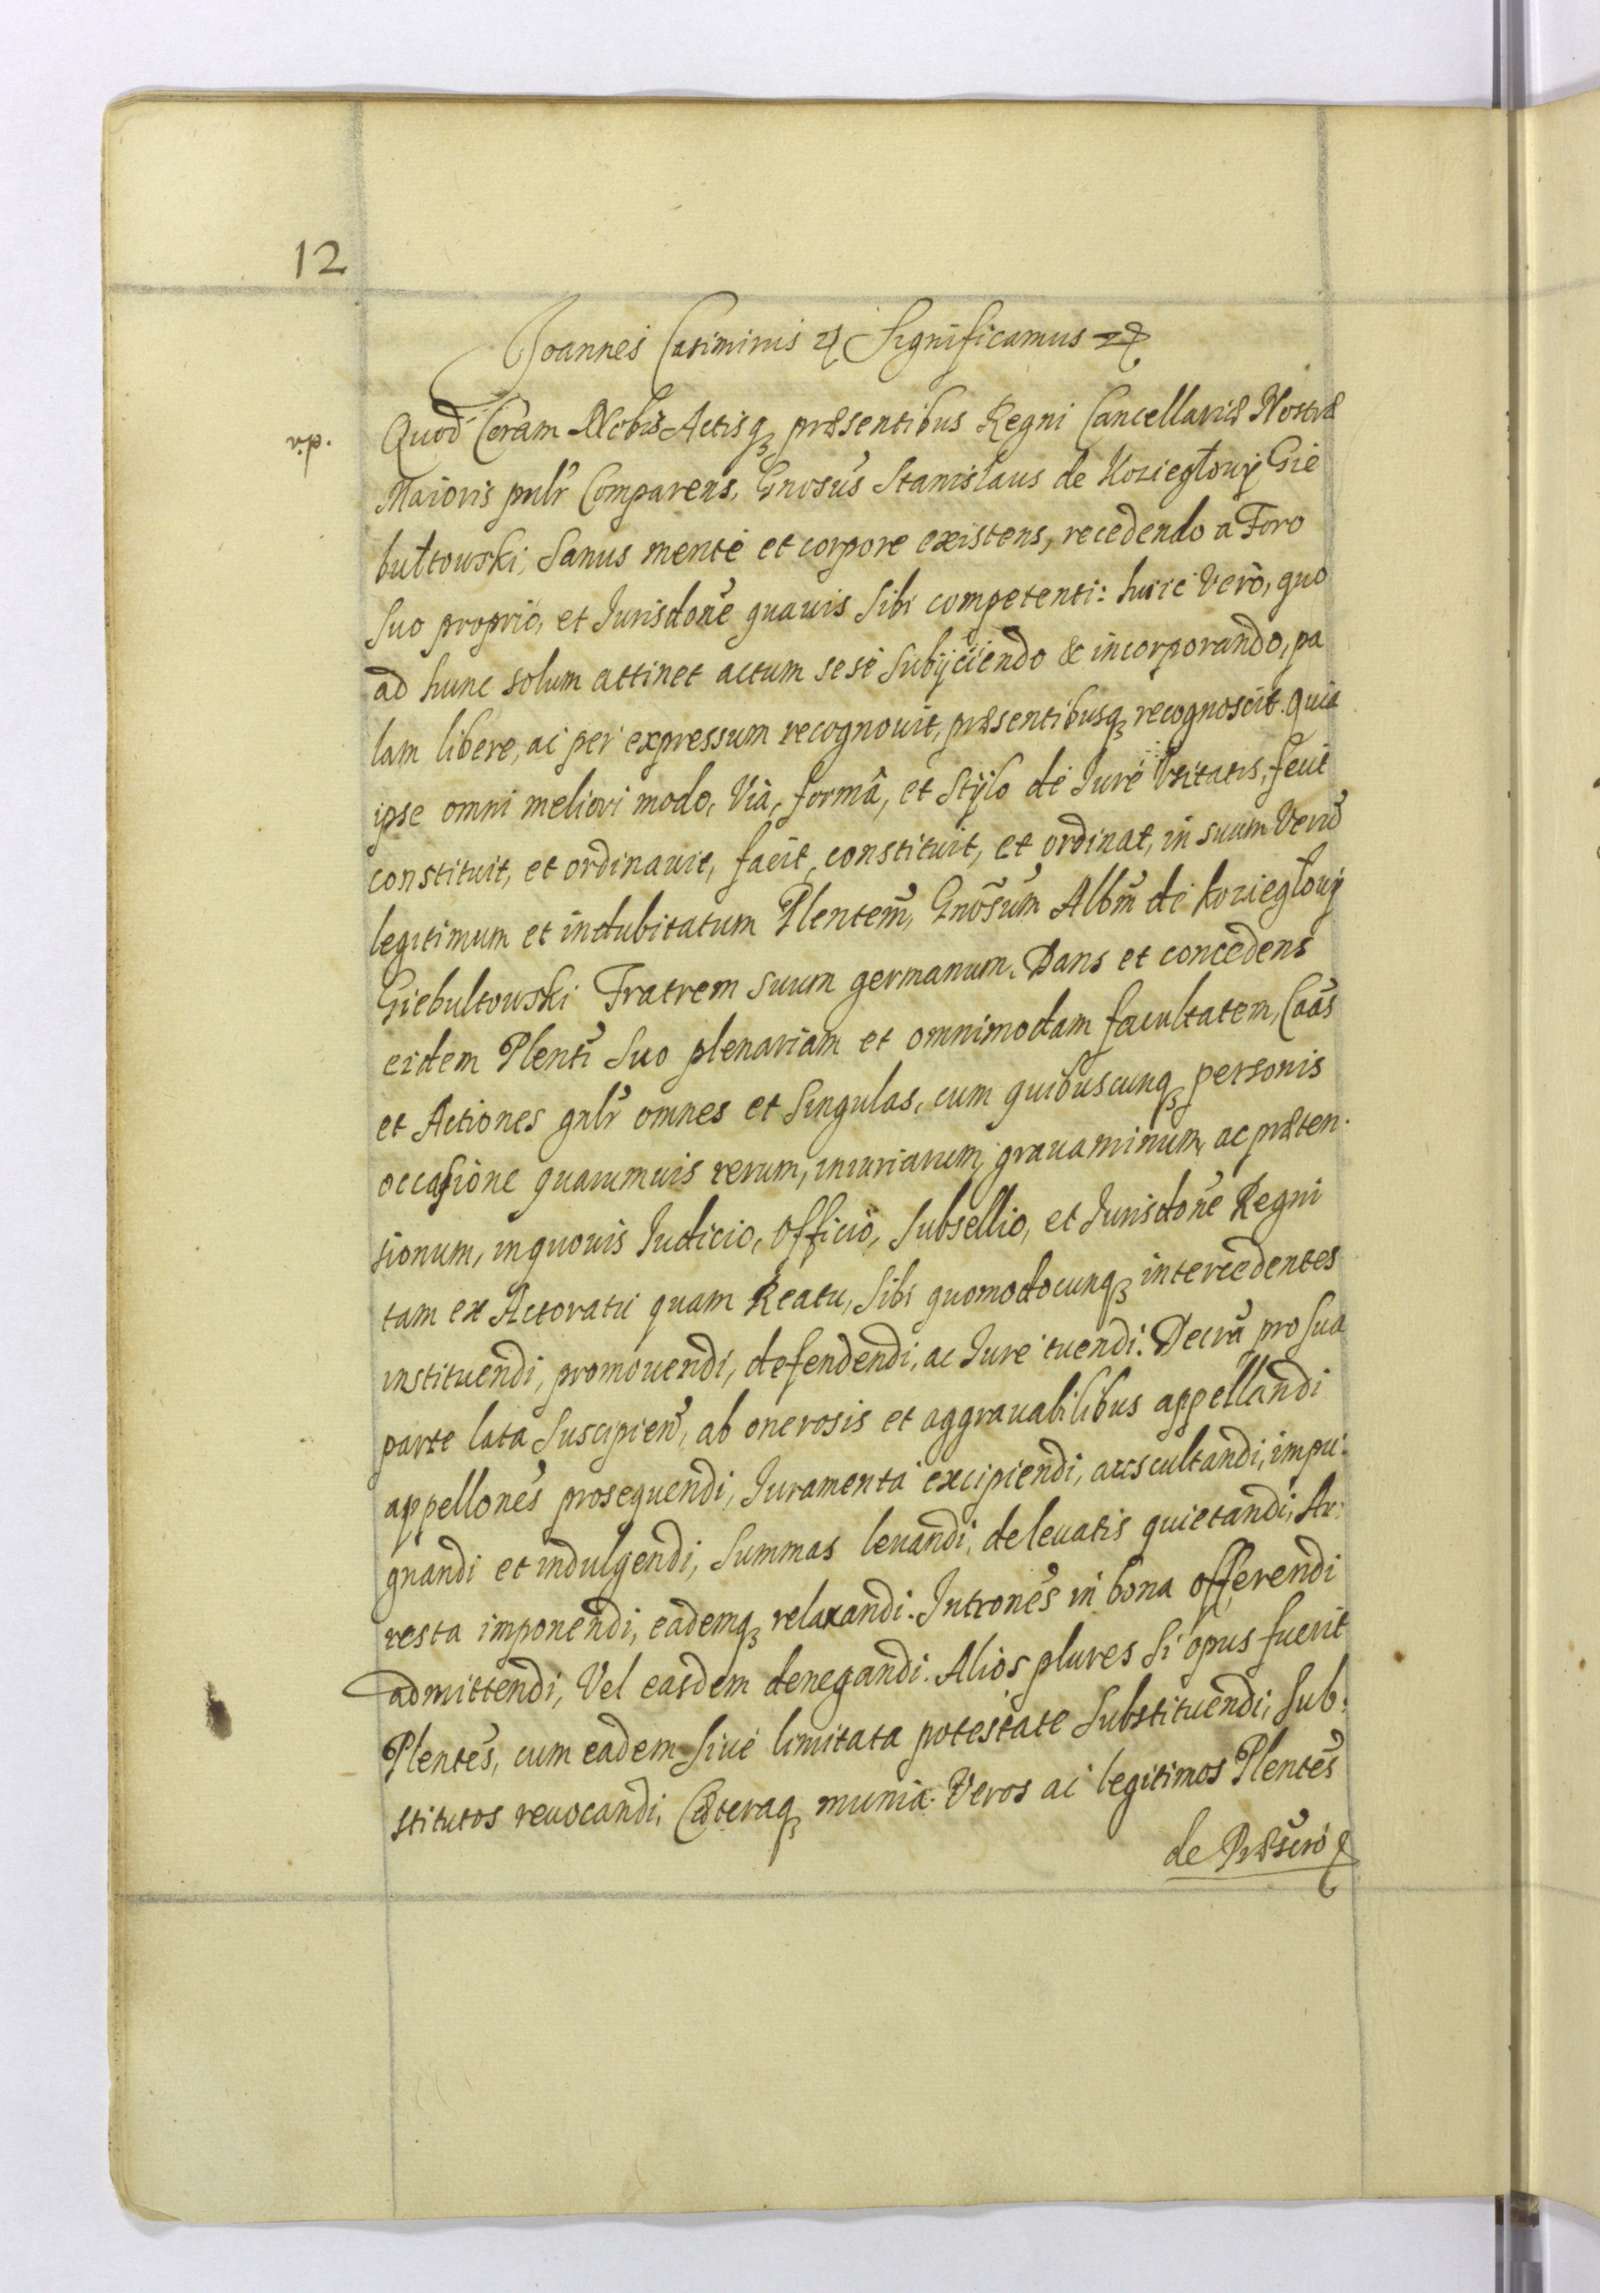 12
Joannes Casimirus etc Significamus etc
Quod Coram Nobis Actisq; præsentibus Regni Cancellariæ Nostræ
Maioris pnlr Comparens, Gnosus Stanislaus de Koziegłowy Gie
bułtowski, Sanus mente et corpore existens, recedendo a Foro
suo proprio, et Jurisdone quauis Sibi competenti: huic Verò, quo
ad hunc solum attinet actum sese Subijciendo & incorporando, pa
lam libere, ac per expressum recognouit, præsentibusq; recognoscit. Quia
ipse omni meliori modo, Via, formâ, et Stÿlo de Jure Vsitatis, fecit
constituit, et ordinauit, facit, constituit, et ordinat, in suum Verũ
legitimum et indubitatum Plentem, Gnosum Albm de koziegłowy
Giebultowski Fratrem suum germanum. Dans et concedens
eidem Plenti Suo plenariam et omnimodam facultatem, Caas
et Actiones gnlr omnes et Singulas, cum quibuscunq; personis
occasione quarumuis rerum, iniuriarum, grauaminum, ac præten-
sionum, in quouis Judicio, Officio, Subsellio, et Jurisdone Regni
tam ex Actoratu quam Reatu, Sibi quomodocunq; intercedentes
instituendi, promouendi, defendendi, ac Jure tuendi. Decra pro sua
parte lata Suscipien, ab onerosis et aggrauabilibus appellandi
appellones prosequendi, Juramenta excipiendi, auscultandi, impu-
gnandi et indulgendi, Summas leuandi, de leuatis quietandi, Ar-
resta imponendi, eademq; relaxandi. Intrones in bona offerendi
admittendi, Vel easdem denegandi. Alios plures Si opus fuerit
Plentes, cum eadem siue limitata potestate Substituendi, Sub-
stitutos reuocandi, Cæteraq; munia Veros ac legitimos Plentes
de Præscro